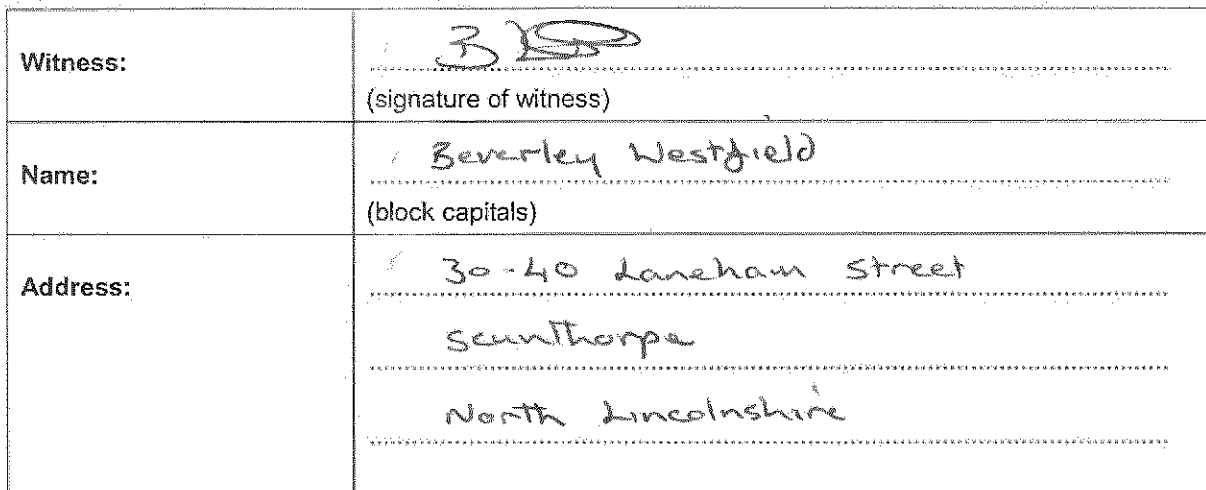 Witness:
(signature of witness)
Name:
Beverley Westfield
(block capitals)
Address:
30-40 Laneham Street
Scunthorpe
North Lincolnshire